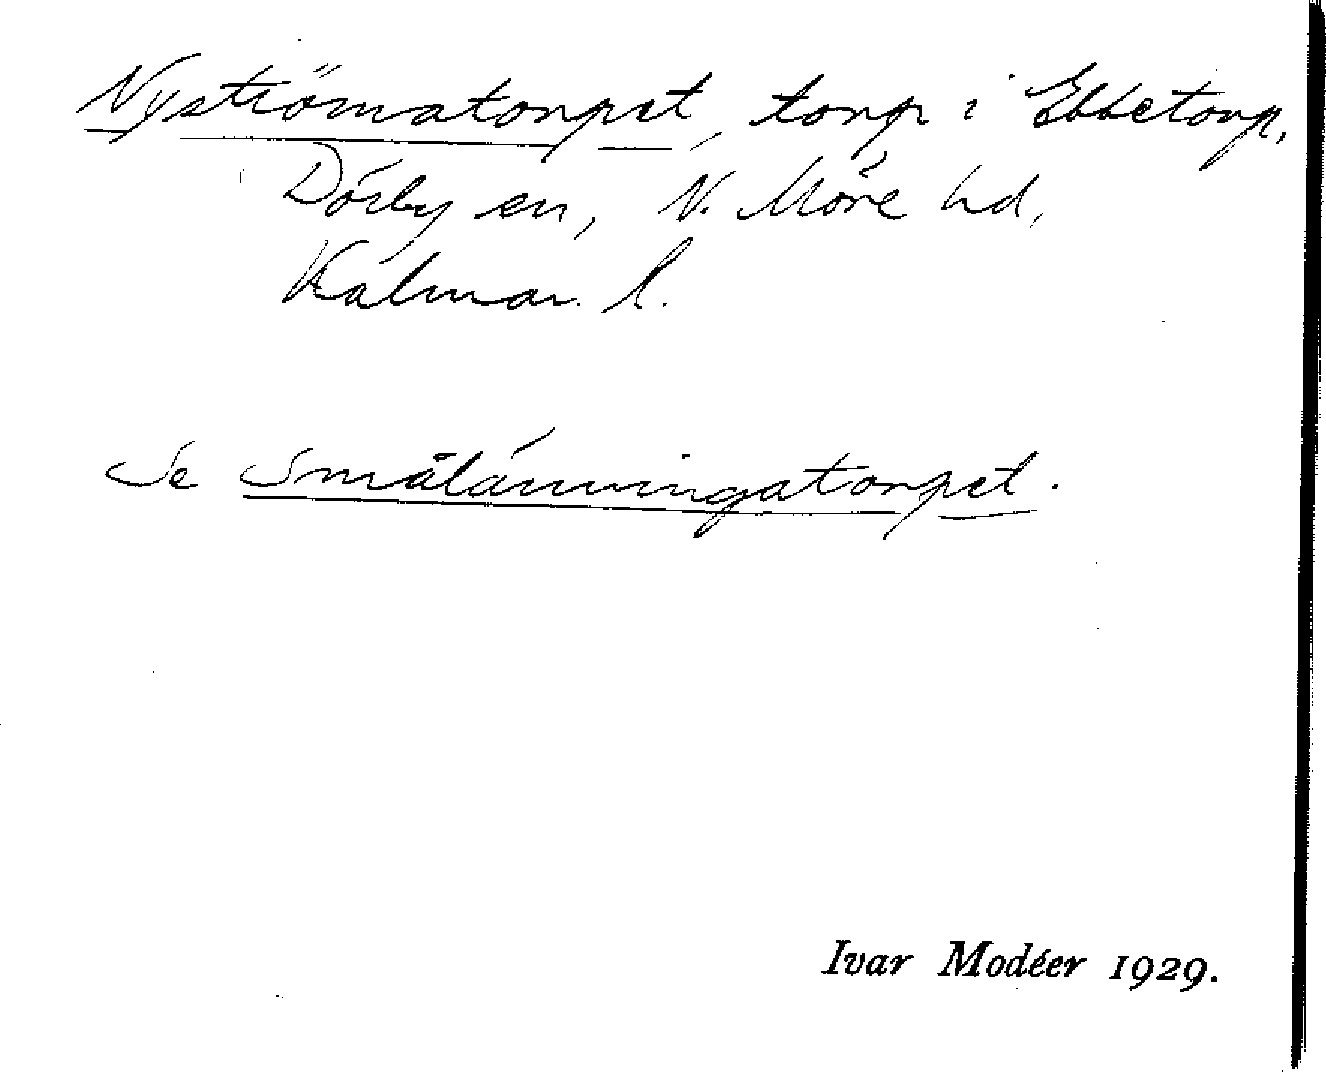 Nyströmatorpet, torp i Ebbetorp,
Dörby sn, N. Möre hd,
Kalmar l.
Se Smålänningatorpet.
Ivar Modéer 1929.